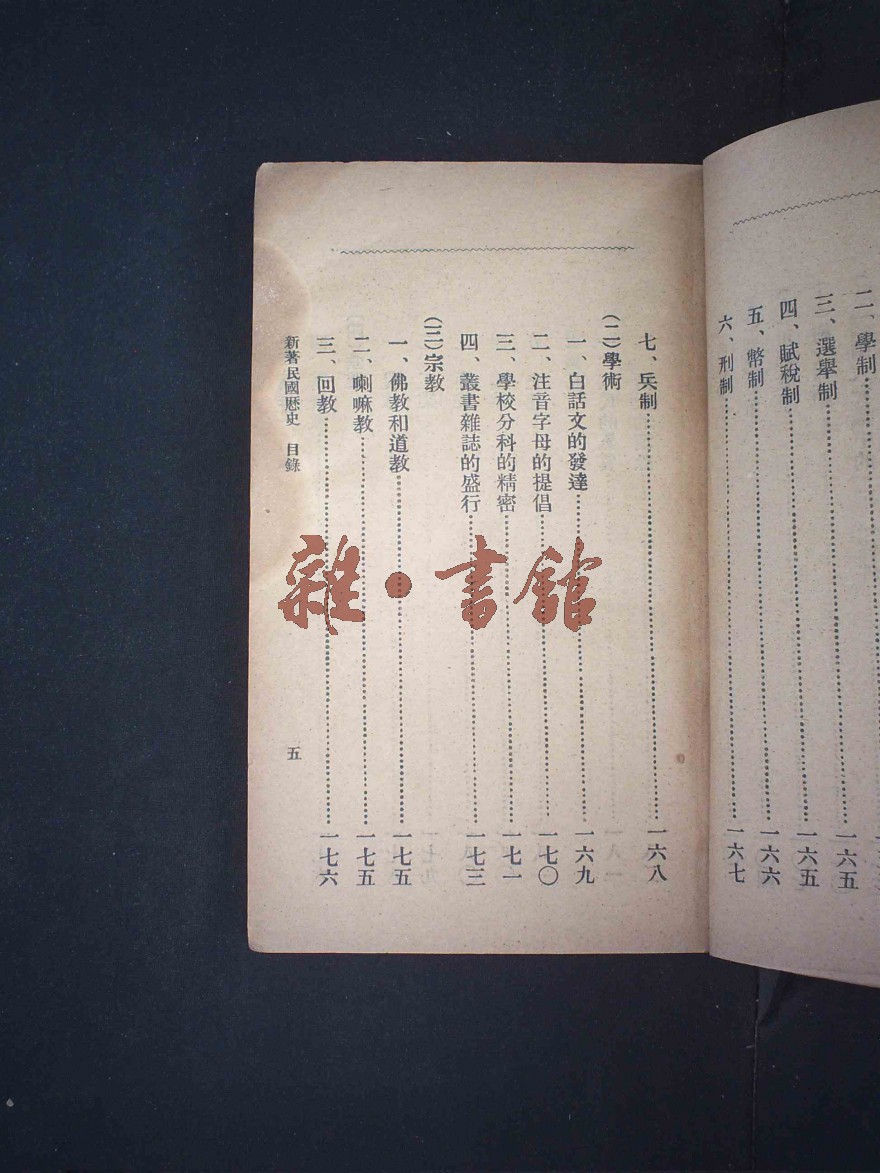 二、學制 一六五
三、選舉制 一六五
四、賦稅制 一六五
五、幣制 一六六
六、刑制 一六七
七、兵制 一六八
(二)學術
一、白話文的發達 一六九
二、注音字母的提倡 一七〇
三、學校分科的精密 一七一
四、叢書雜誌的盛行 一七三
(三)宗教
一、佛教和道教 一七五
二、喇嘛教 一七五
三、回教 一七六
新著民國歷史 目錄 五
雜·書館